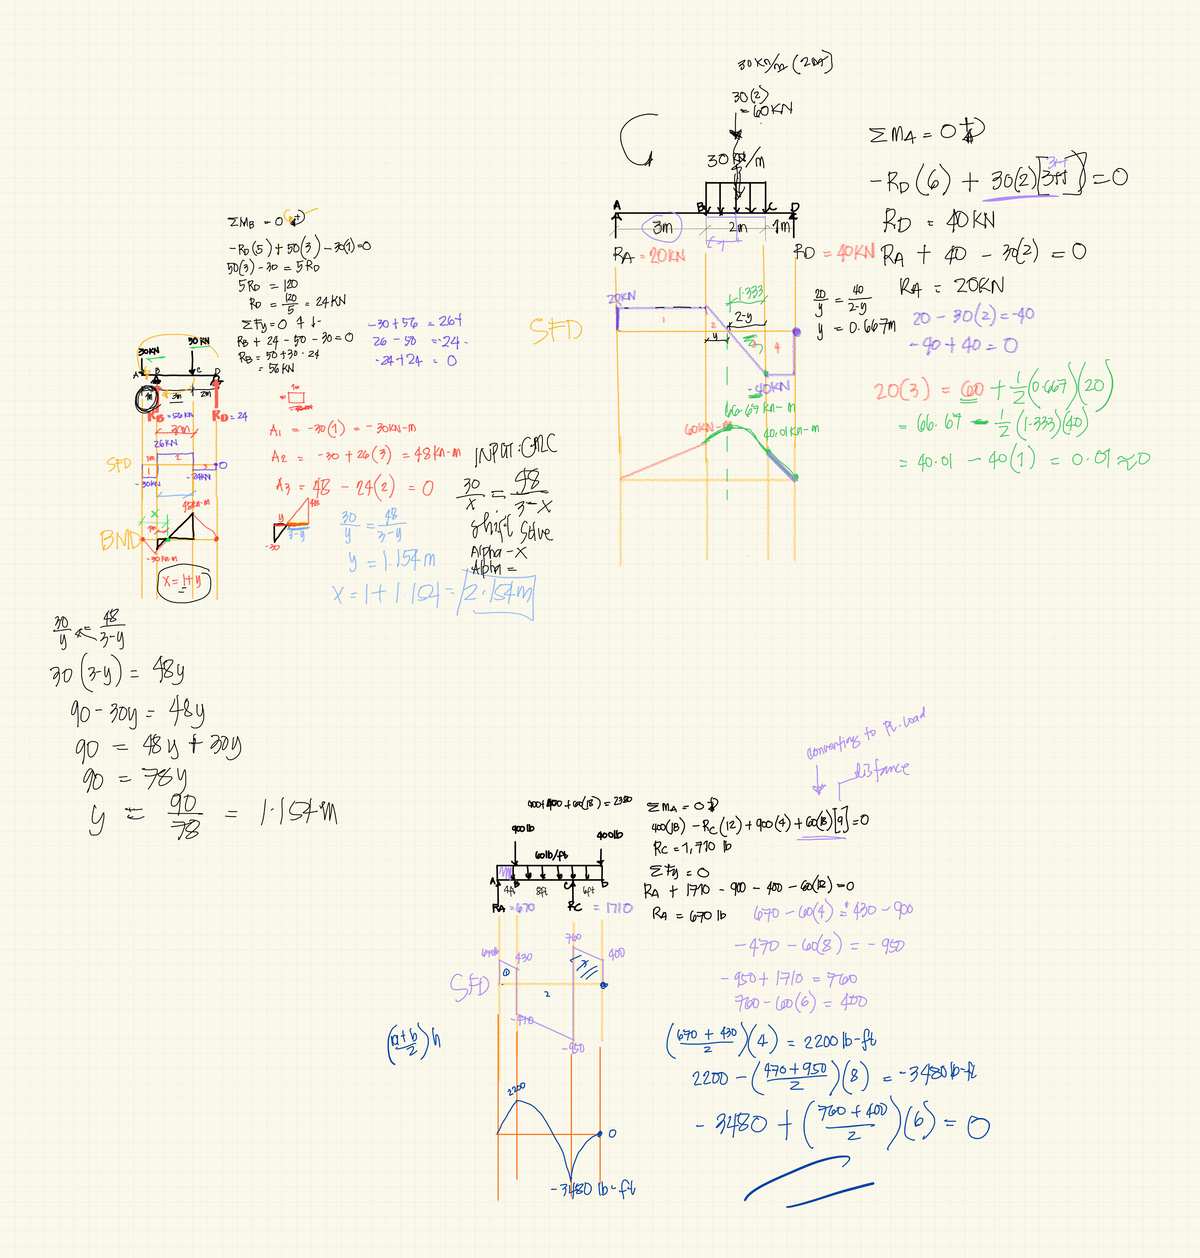 ΣMB = 0
-RD(5) + 50(3) - 30(1) = 0
50(3) - 30 = 5RD
5RD = 120
RD = 120/5 = 24 KN
ΣFy = 0
RB + 24 - 50 - 30 = 0
RB = 50 + 30 - 24
= 56 KN
-30 + 56 = 26
26 - 50 = -24
-24 + 24 = 0
30KN
A B C D
3m 2m
RB = 56KN RD = 24
3m
26KN
SFD
1 2 3 0
-30KN -24KN
48KN-m
X
1m
BMD
-30 KN-m
X = 1 + y
1m
A1 = -30(1) = -30KN-m
A2 = -30 + 26(3) = 48KN-m
A3 = 48 - 24(2) = 0
48
y
3-y
-30
30/y = 48/3-y
y = 1.154m
X = 1 + 1.154 = 2.154m
INPUT: CALC
30/X = 48/3-X
Shift Solve
Alpha - X
Alpha =
30/y = 48/3-y
30(3-y) = 48y
90 - 30y = 48y
90 = 48y + 30y
90 = 78y
y = 90/78 = 1.154m
30(2)
= 60KN
A B C D
3m 2m 1m
RA = 20KN RD = 40KN
20KN
1.333
2-y
SFD
1 2 4
y
-40KN
66.67 KN-m
60KN-m
40.01KN-m
20/y = 40/2-y
y = 0.667m
ΣMA = 0
-RD(6) + 30(2)[3+1] = 0
RD = 40KN
RA + 40 - 30(2) = 0
RA = 20KN
20 - 30(2) = -40
-40 + 40 = 0
20(3) = 60 + 1/2(0.667)(20)
= 66.67 - 1/2(1.333)(40)
= 40.01 - 40(1) = 0.01 ≈ 0
converting to Pt. Load
distance
900 + 400 + 60(18) = 2380
900lb 400lb
60lb/ft
A B C D
4ft 8ft 6ft
RA = 670 RC = 1710
760
430 400
SFD
1 2 3
-470
-950
(a+b/2)h
2200
0
-3480 lb-ft
ΣMA = 0
400(18) - RC(12) + 900(4) + 60(18)[9] = 0
RC = 1,710 lb
ΣFy = 0
RA + 1710 - 900 - 400 - 60(18) = 0
RA = 670 lb
670 - 60(4) = 430 - 900
-470 - 60(8) = -950
-950 + 1710 = 760
760 - 60(6) = 400
(670 + 430/2)(4) = 2200 lb-ft
2200 - (470+950/2)(8) = -3480lb-ft
-3480 + (760+400/2)(6) = 0